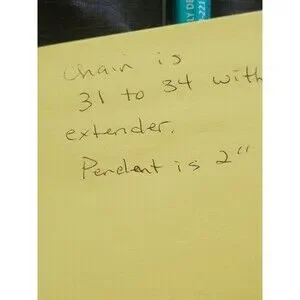 chain is
31 to 34 with
extender.
Pendent is 2"